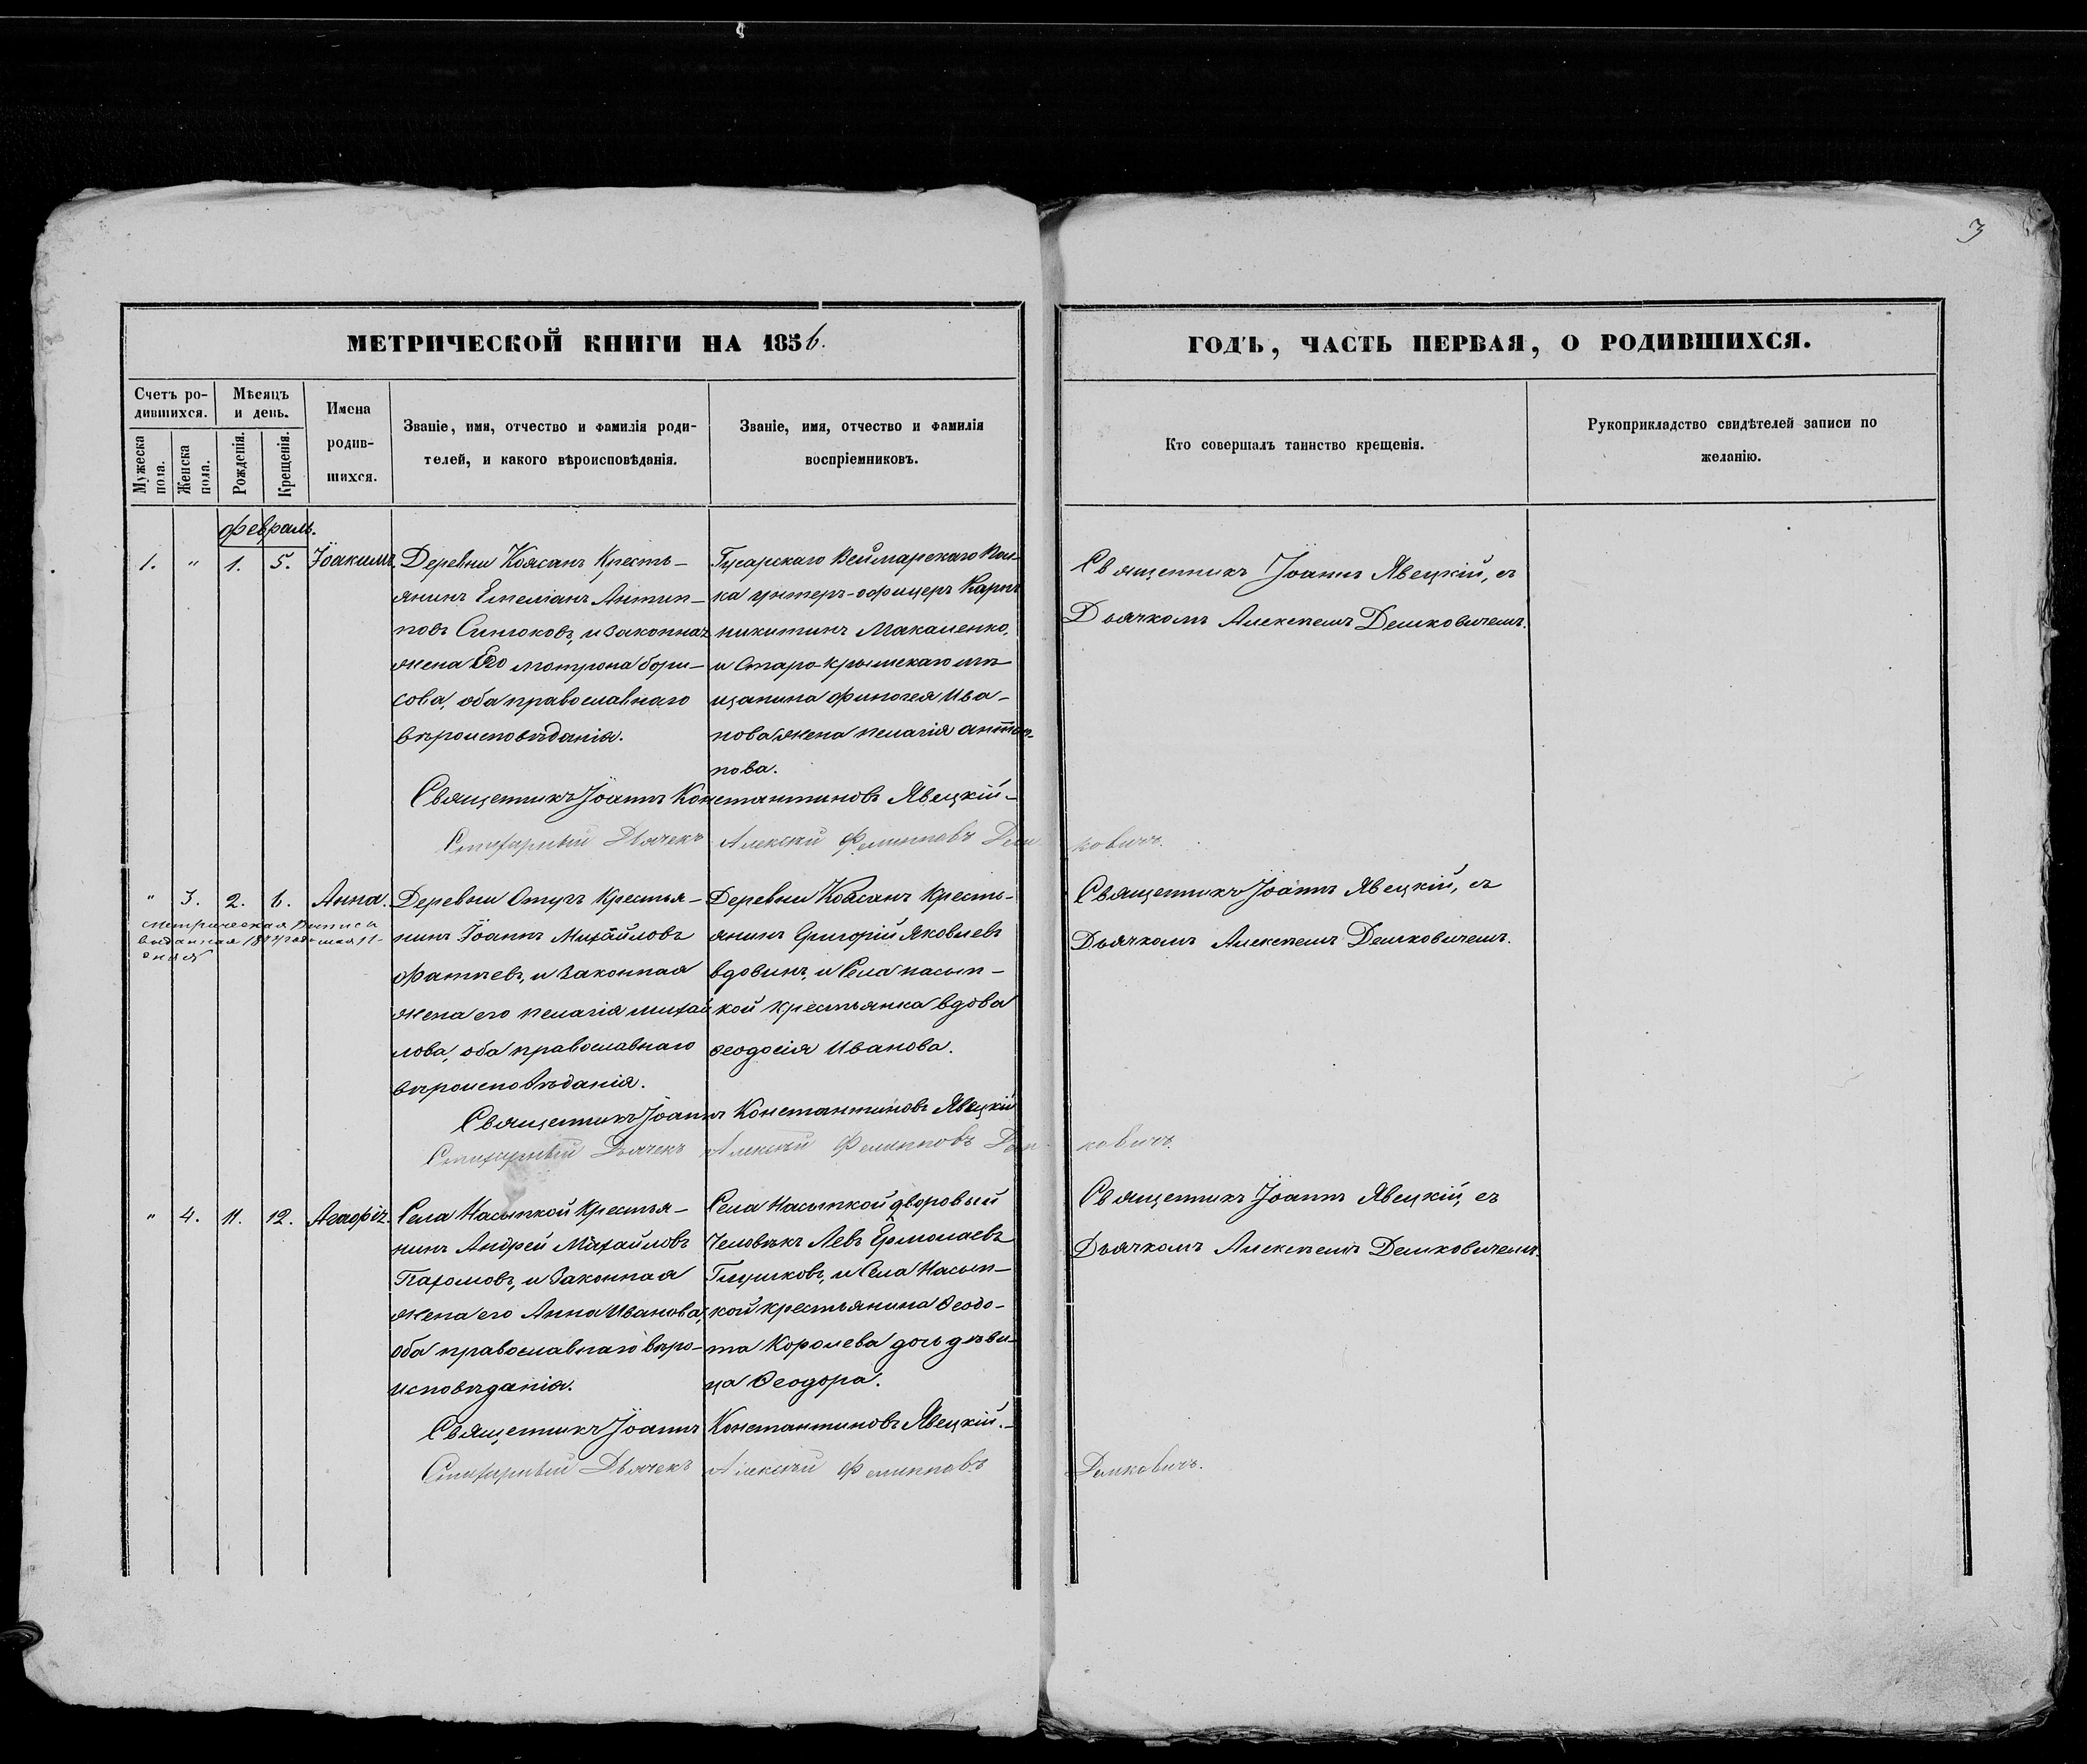 3
МЕТРИЧЕСКОЙ КНИГИ НА 1856.
ГОДЪ, ЧАСТЬ ПЕРВАЯ, О РОДИВШИХСЯ.
Счетъ ро-
дившихся.
Мужеска
пола.
Женска
пола.
Мѣсяцъ
и день.
Рожденія.
Крещенія.
Имена
родив-
шихся.
Званіе, имя, отчество и фамилія роди-
телей, и какого вѣроисповѣданія.
Званіе, имя, отчество и фамилія
воспріемниковъ.
Кто совершалъ таинство крещенія.
Рукоприкладство свидѣтелей записи по
желанію.
Февраль.
1. " 1. 5. Іоакимъ.
Деревни Коясанъ Кресть-
янинъ Емеліанъ Антип-
повъ Синюковъ, и законная
жена Его Матрона Бори-
сова, оба православнаго
вѣроисповѣданія.
Гусарскаго Веймарскаго Пол-
ка унтеръ-офицеръ Карпъ
Никитинъ Макаленко,
и Старо-Крымскаго мѣ-
щанина Финогея Ива-
нова жена Пелагія Антип-
пова.
Священникъ Іоаннъ Явецкій, съ
Дьячкомъ Алексѣемъ Демковичемъ.
Священникъ Іоаннъ Константиновъ Явецкій
Стихарный Дьячекъ Алексѣй Филипповъ Демковичъ.
" 3. 2. 6. Анна.
Метрическая Выпись
выданная
Деревни Отузъ Крестья-
нинъ Іоаннъ Михайловъ
Фатѣевъ, и законная
жена его Пелагія Михай
лова, оба православнаго
вѣроисповѣданія.
Деревни Коясанъ Кресть-
янинъ Григорій Яковлевъ
Вдовинъ, и Села Насып-
кой крестьянка вдова
Ѳеодосія Иванова.
Священникъ Іоаннъ Явецкій, съ
Дьячкомъ Алексѣемъ Демковичемъ.
Священникъ Іоаннъ Константиновъ Явецкій
Стихарный Дьячекъ Алексѣй Филипповъ Демковичъ.
" 4. 11. 12.
Села Насыпкой Крестья-
нинъ Андрей Михайловъ
Пахомовъ, и законная
жена его Анна Иванова,
оба православнаго вѣро-
исповѣданія.
Села Насыпкой дворовый
Человѣкъ Левъ Ермолаевъ
Глушковъ, и Села Насып-
кой крестьянина Ѳеодо-
та Королева дочь дѣви-
ца Ѳеодора.
Священникъ Іоаннъ Явецкій, съ
Дьячкомъ Алексѣемъ Демковичемъ.
Священникъ Іоаннъ Константиновъ Явецкій.
Стихарный Дьячекъ Алексѣй Филипповъ Демковичъ.